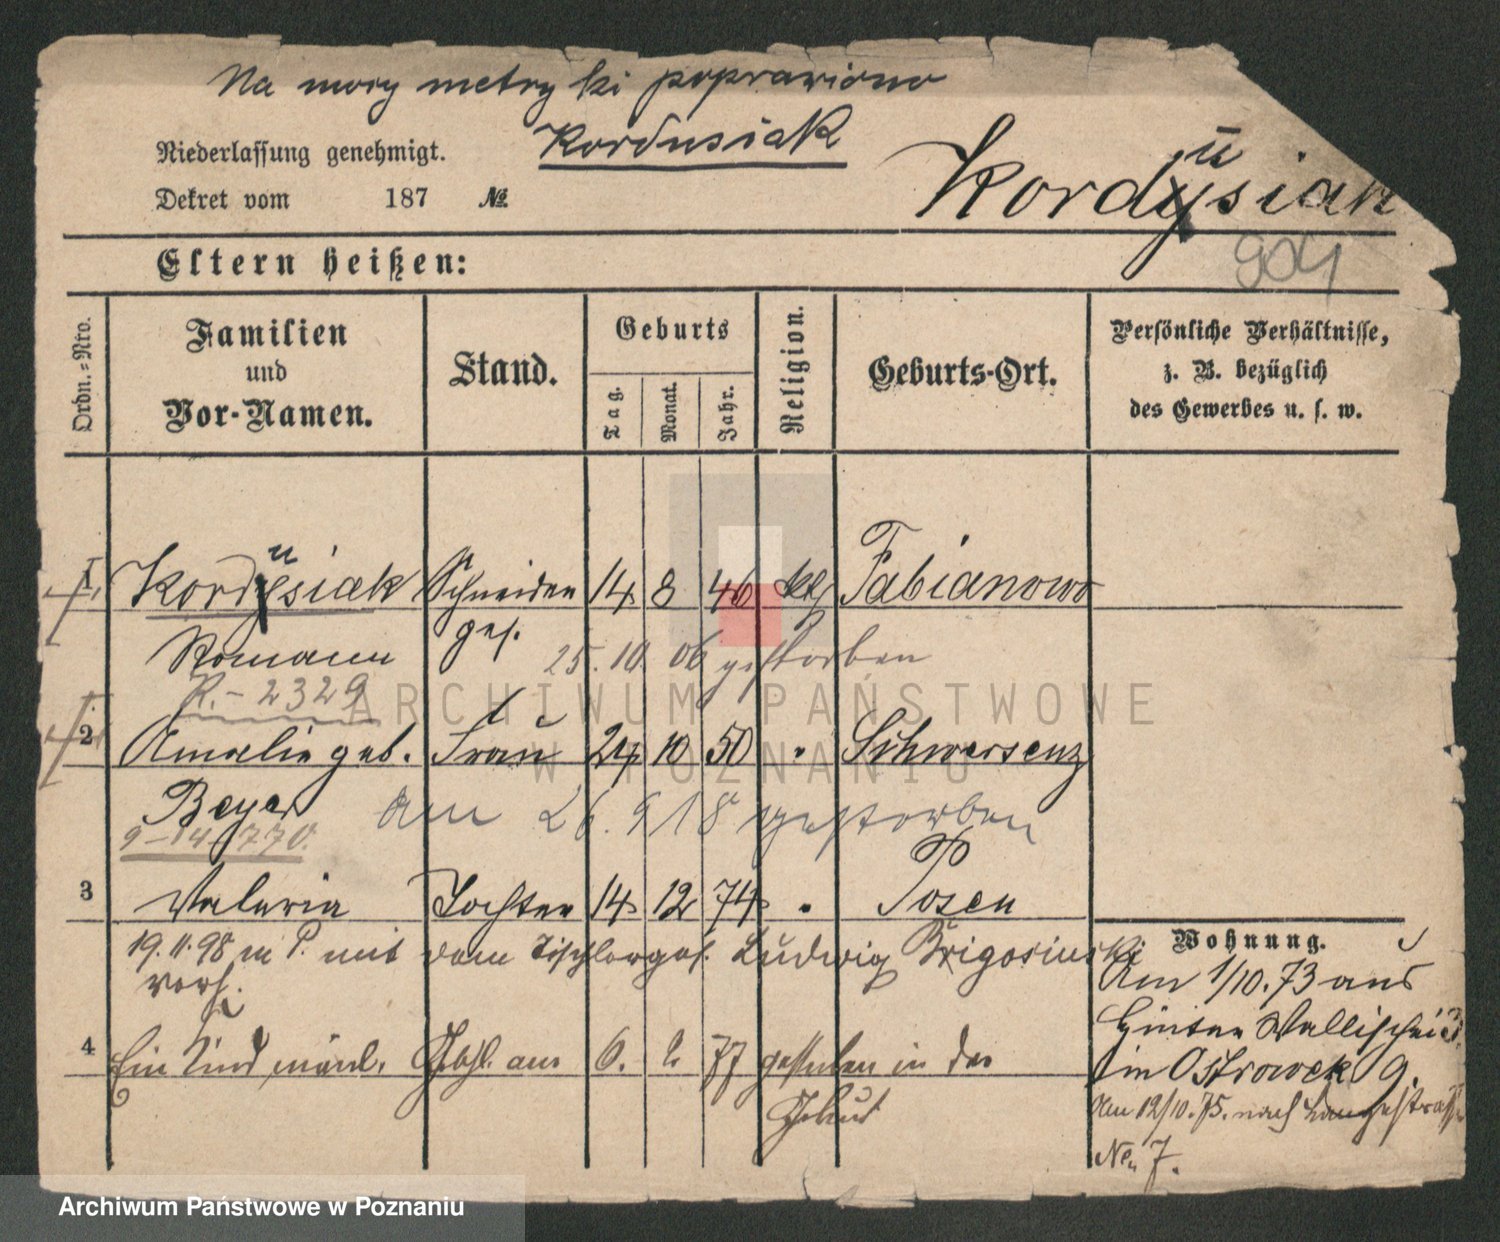 Na mocy metryki poprawiono
Kordusiak
Niederlassung genehmigt.
Dekret vom 187 №
Kordysiak
u
904
Eltern heißen:
Ordn.=Nro.
Familien
und
Vor-Namen.
Stand.
Geburts
Tag.
Monat.
Jahr.
Religion.
Geburts-Ort.
Persönliche Verhältnisse,
z. B. bezüglich
des Gewerbes u. s. w.
u
1 Kordysiak Schneider 14 8 46 kt Fabianowo
Romann ges. 25. 10 06 gestorben
R.- 2329
2 Amalie geb. Frau 24 10 50 " Schwersenz
Beyer am 26. 9 18 gestorben
9-14-770.
3 Valeria Tochter 14 12 74 " Posen
19.11.98 in P. mit dem Tischlerges. Ludwig
verh.
4 Ein Kind männl. 6. 2. 77 gestorben in der
Geburt
Wohnung.
Am 1/10.73 aus
Hinter Wallischei
in Ostrowek 9.
Am 12/10.75. nach Langestraße
No. 7.
ARCHIWUM PAŃSTWOWE
W POZNANIU
Archiwum Państwowe w Poznaniu